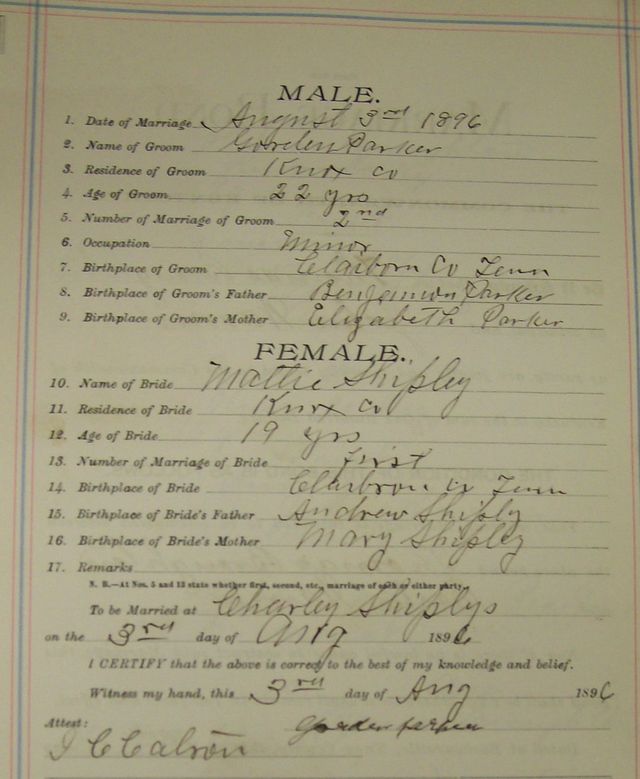 MALE.
1. Date of Marriage August 3rd 1896
2. Name of Groom Gorden Parker
3. Residence of Groom Knox Co
4. Age of Groom 22 yrs
5. Number of Marriage of Groom 2nd
6. Occupation Minor
7. Birthplace of Groom Claiborn Co Tenn
8. Birthplace of Groom's Father Benjamion Parker
9. Birthplace of Groom's Mother Elizabeth Parker
FEMALE.
10. Name of Bride Mattie Shipley
11. Residence of Bride Knox Co
12. Age of Bride 19 yrs
13. Number of Marriage of Bride first
14. Birthplace of Bride Claibron Co Tenn
15. Birthplace of Bride's Father Andrew Shiply
16. Birthplace of Bride's Mother Mary Shipley
17. Remarks
N. B.—At Nos. 5 and 13 state whether first, second, etc., marriage of each or either party.
To be Married at Charley Shiplys
on the 3rd day of Aug 1896
I CERTIFY that the above is correct to the best of my knowledge and belief.
Witness my hand, this 3rd day of Aug 1896
Attest: Gorden Parker